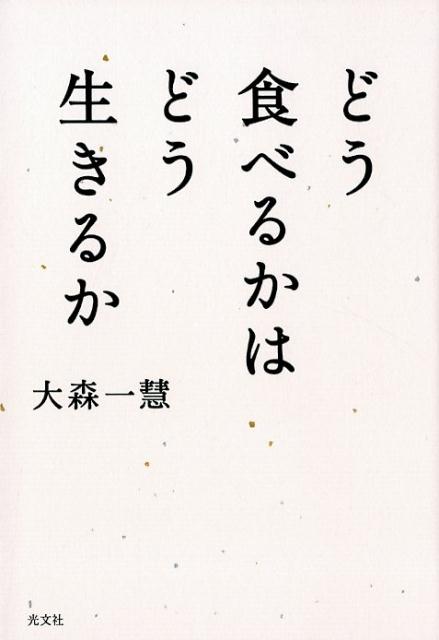 どう
食べるかは
どう
生きるか
大森一慧
光文社